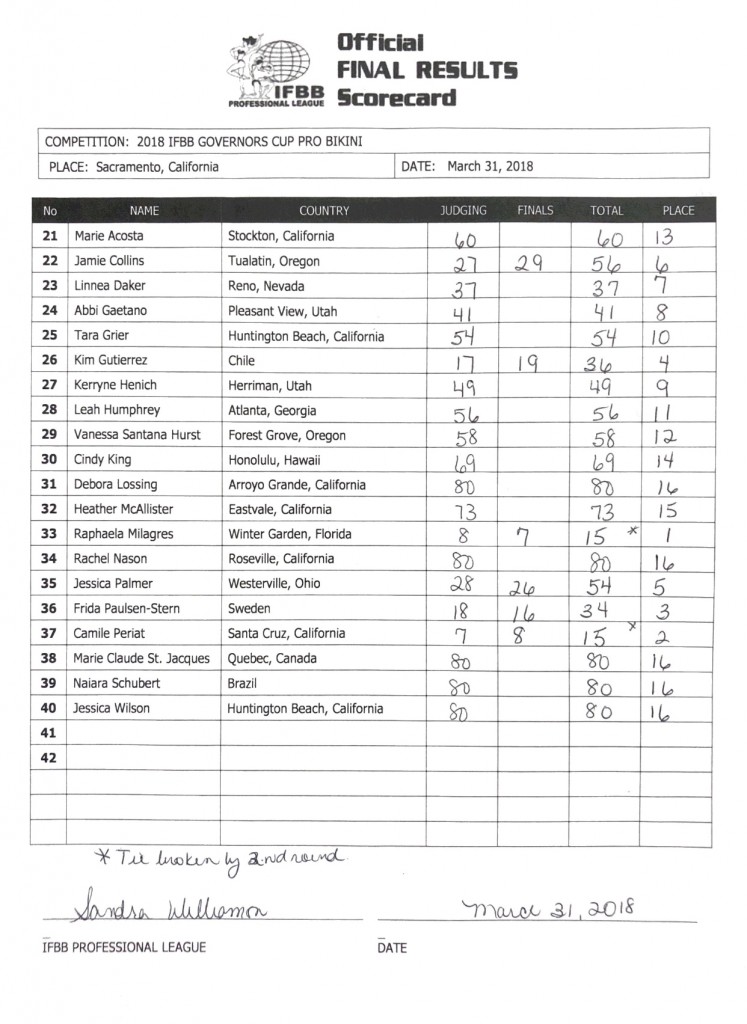 Official
FINAL RESULTS
Scorecard
IFBB
PROFESSIONAL LEAGUE
COMPETITION: 2018 IFBB GOVERNORS CUP PRO BIKINI
PLACE: Sacramento, California DATE: March 31, 2018
No NAME COUNTRY JUDGING FINALS TOTAL PLACE
21 Marie Acosta Stockton, California 60 60 13
22 Jamie Collins Tualatin, Oregon 27 29 56 6
23 Linnea Daker Reno, Nevada 37 37 7
24 Abbi Gaetano Pleasant View, Utah 41 41 8
25 Tara Grier Huntington Beach, California 54 54 10
26 Kim Gutierrez Chile 17 19 36 4
27 Kerryne Henich Herriman, Utah 49 49 9
28 Leah Humphrey Atlanta, Georgia 56 56 11
29 Vanessa Santana Hurst Forest Grove, Oregon 58 58 12
30 Cindy King Honolulu, Hawaii 69 69 14
31 Debora Lossing Arroyo Grande, California 80 80 16
32 Heather McAllister Eastvale, California 73 73 15
33 Raphaela Milagres Winter Garden, Florida 8 7 15 * 1
34 Rachel Nason Roseville, California 80 80 16
35 Jessica Palmer Westerville, Ohio 28 26 54 5
36 Frida Paulsen-Stern Sweden 18 16 34 3
37 Camile Periat Santa Cruz, California 7 8 15 * 2
38 Marie Claude St. Jacques Quebec, Canada 80 80 16
39 Naiara Schubert Brazil 80 80 16
40 Jessica Wilson Huntington Beach, California 80 80 16
41
42
* Tie broken by 2nd round.
Sandra Williamson March 31, 2018
IFBB PROFESSIONAL LEAGUE DATE